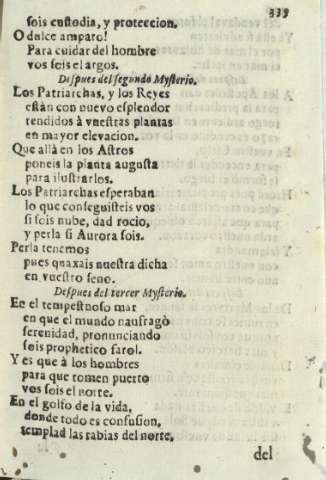 339
sois custodia, y proteccion.
O dulce amparo!
Para cuidar del hombre
vos sois el argos.
Despues del segundo Mysterio.
Los Patriarchas, y los Reyes
están con nuevo esplendor
rendidos à vuestras plantas
en mayor elevacion.
Que allà en los Astros
poneis la planta augusta
para ilustrarlos.
Los Patriarchas esperaban
lo que conseguisteis vos
si sois nube, dad rocio,
y perla si Aurora sois.
Perla tenemos
pues quaxais nuestra dicha
en vuestro seno.
Despues del tercer Mysterio.
En el tempestuoso mar
en que el mundo naufragò
serenidad, pronunciando
sois prophetico farol.
Y es que à los hombres
para que tomen puerto
vos sois el norte.
En el golfo de la vida,
donde todo es confusion,
templad las rabias del norte,
del